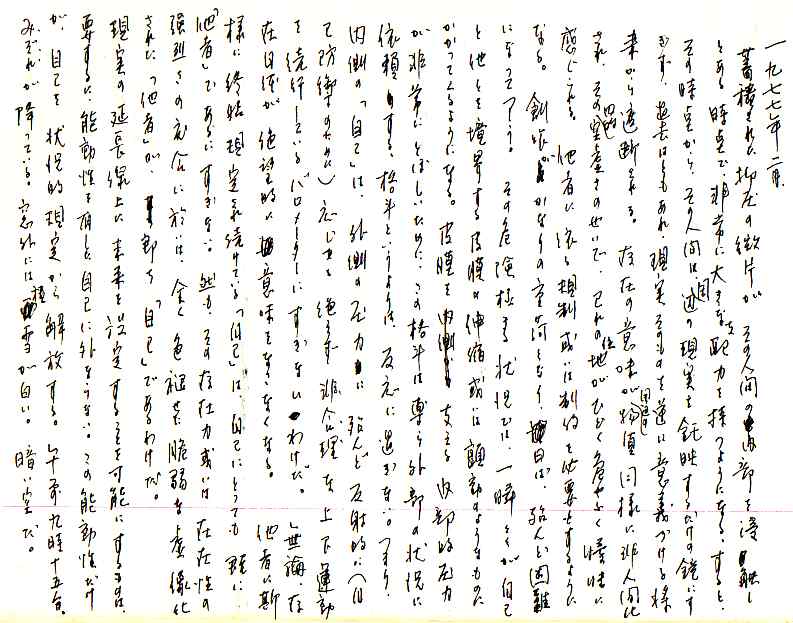 一九七七年二月
蓄積された抑圧の微片が、その人間の内部を浸蝕し
とある時点で、非常に大きな支配力を採つようになる。すると、
その時点から、その人間は、周辺の現実を 映するだけの鏡にす
ぎず、過去はともあれ、現実そのものを逆に意義づける様
来から遮断される。存在の意味が物値同様に非人間化
され、その空虚さのせいで、己れの位地がひどく危やふく曖昧に
感じられる。他者に依る規制或いは制約を必要とするように
なる。創 がかなりの重荷となり、 は、殆んど困難
になってしまう。その危険極まる状況では、一瞬とくが自己
と他とを境界する皮膜の伸縮、或いは顫動のようなものに
かかってくるようになる。皮膜を 支える内部的圧力
が非常にとぼしいために、この格斗は専ら外部の状況に
依頼する。格斗というよりは、反応に過ぎない。つまり、
内側の「自己」は、外側の圧力に殆んど反射的に(自
己防禦のために)応じつつ絶えず非合理な上下運動
を続行しているバロメーターにすぎないわけだ。無論、存
在自体が絶望的に意味をなさなくなる。他者に斯
様に終始規定され続けている「自己」は、自己にとっても 既に、
「他者」であるにすぎない。然も、その存在力或いは存在性の
強烈さの度合に於いては、全く色褪せた脆弱な虚像化
された「他者」が、即ち「自己」であるわけだ。
現実の延長線上に未来を設定することを可能にするものは、
要するに、能動性を有した自己に外ならない。この能動性だけ
が、自己を状況的規定から解放する。午前九時十五分。
みぞれが降っている。窓外には 雪が白い。暗い空だ。